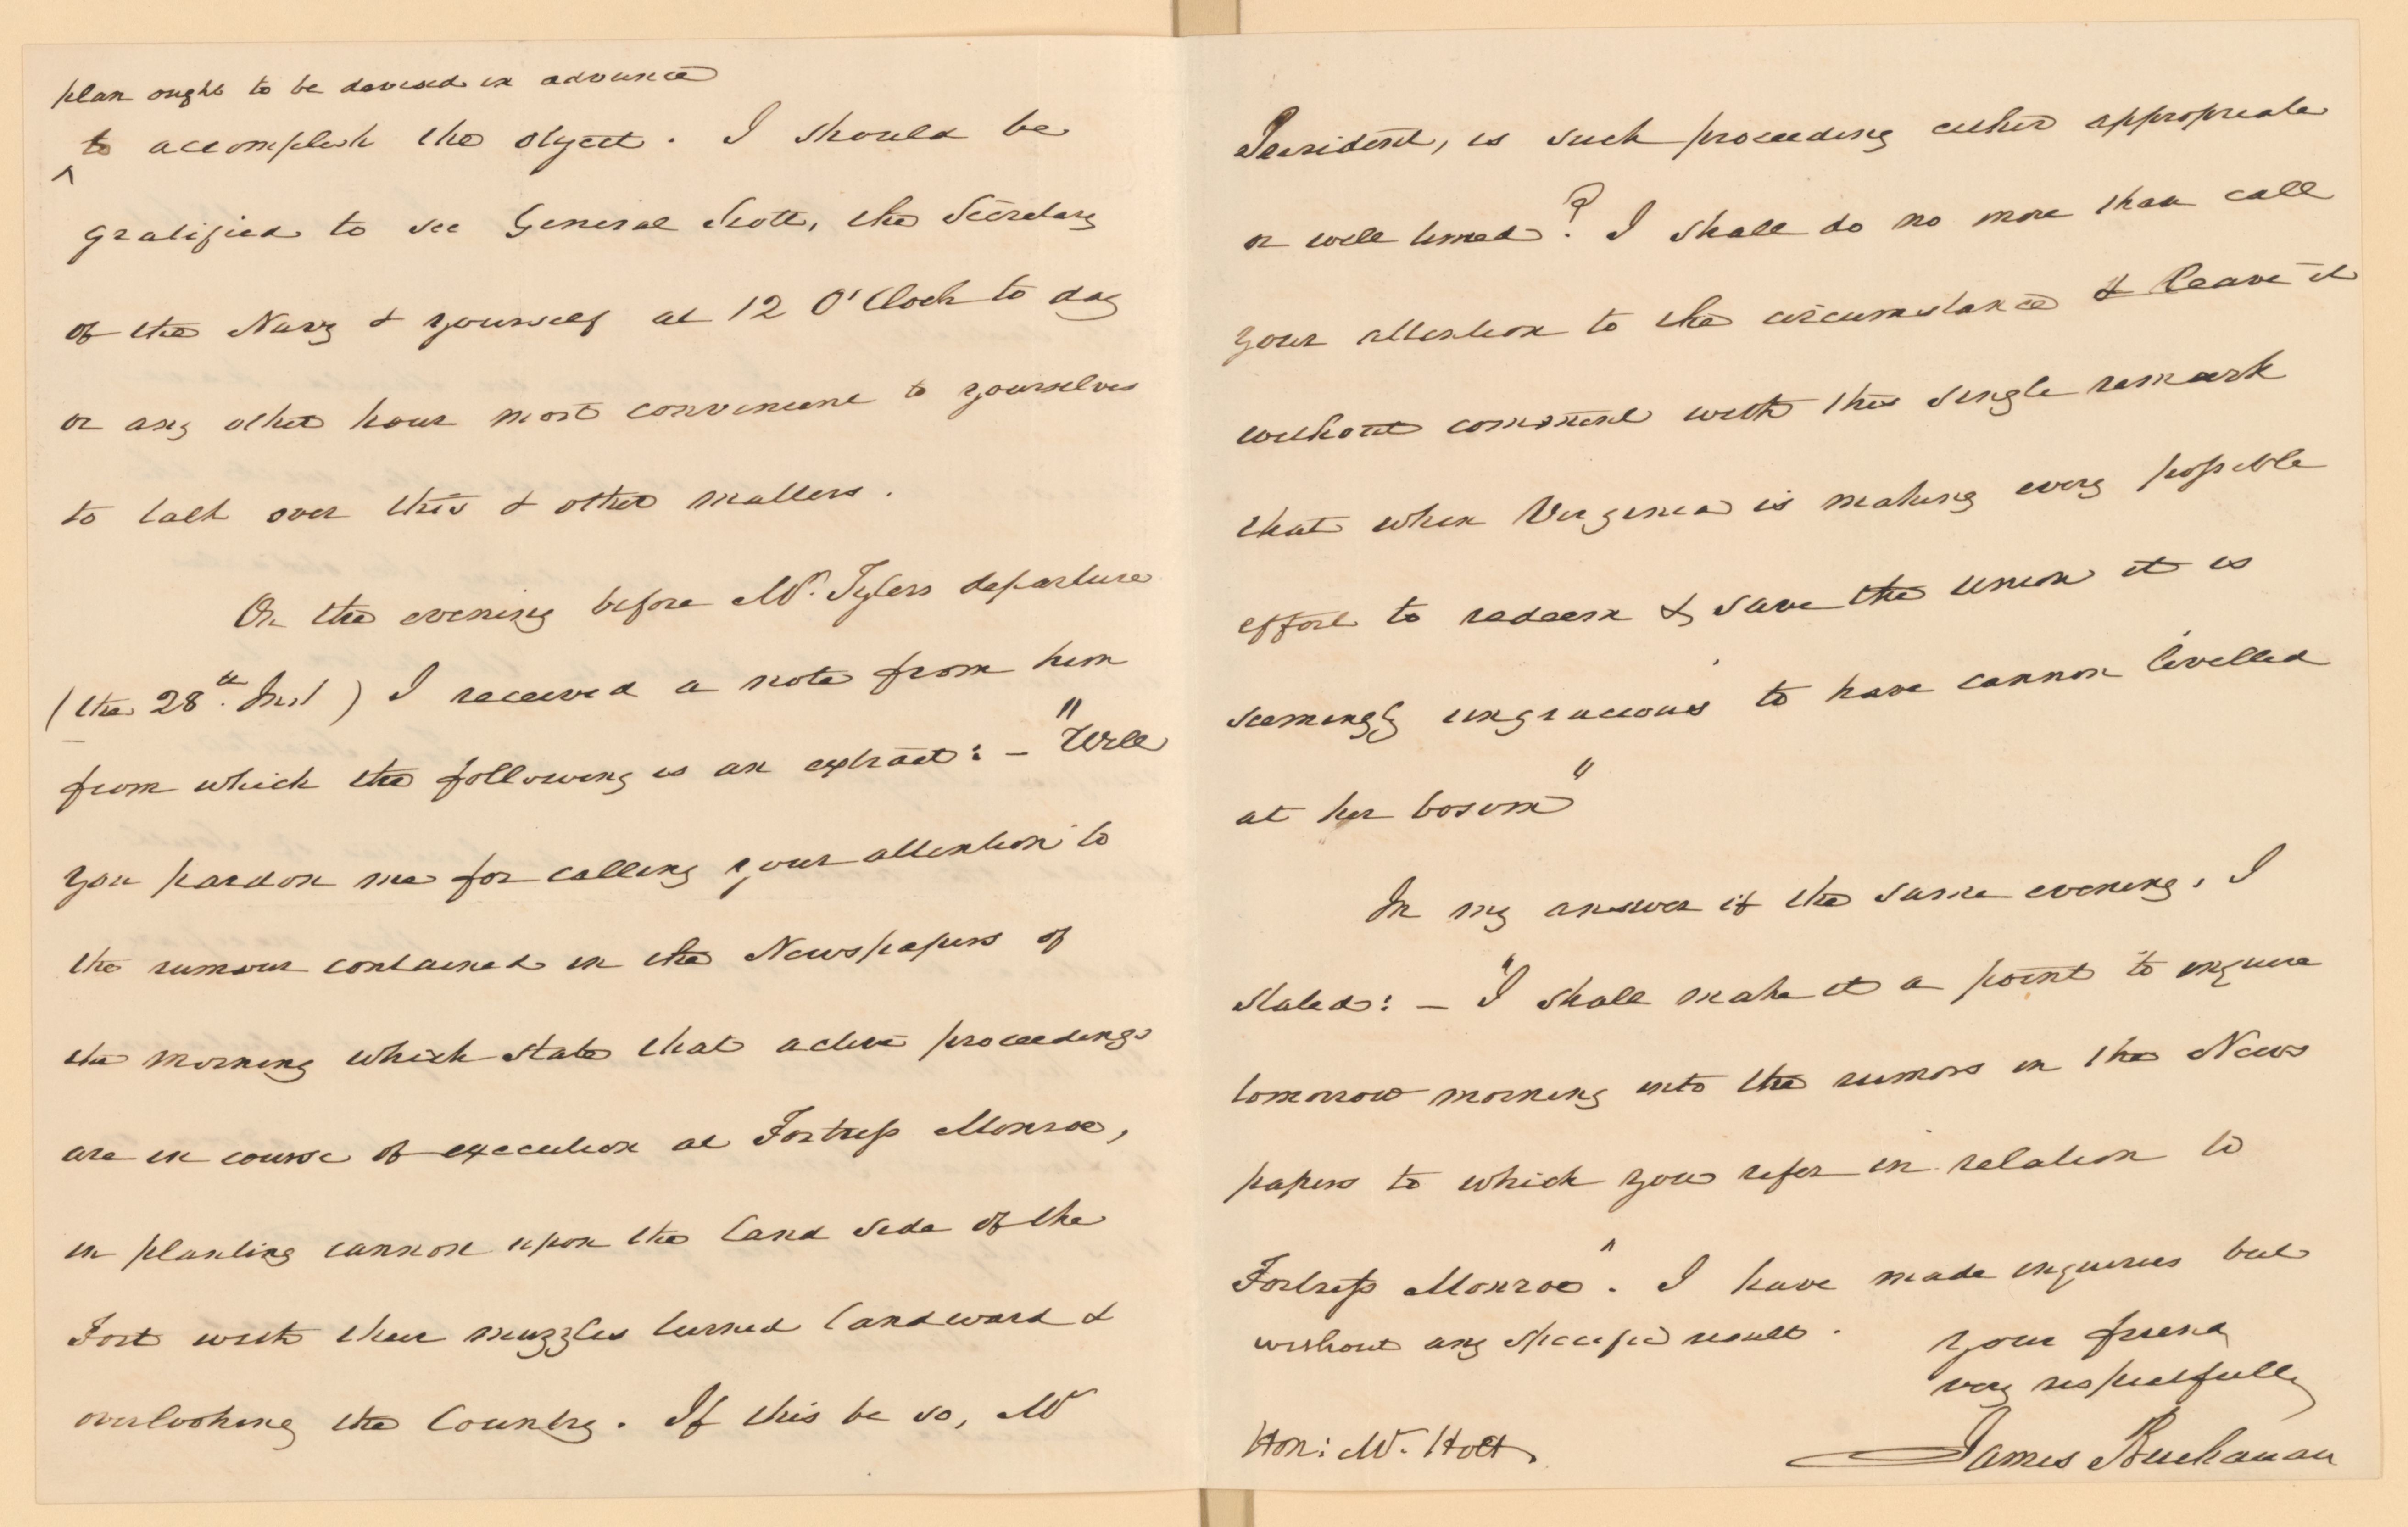 plan ought to be devised in advance
to accomplish the object. I should be
^
gratified to see General Scott, the Secretary
of the Navy & yourself at 12 O'Clock to day
or any other hour most convenient to yourselves
to talk over this & other matters.
On the evening before Mr. Tylers departure
(the 28th. Inst) I received a note from him
from which the following is an extract: – "Will
you pardon me for calling your attention to
the rumour contained in the Newspapers of
the morning which state that active proceedings
are in course of execution at Fortress Monroe,
in planting cannon upon the land side of the
Fort with their muzzles turned landward &
overlooking the Country. If this be so, Mr
President, is such proceeding either appropriate
or well timed? I shall do no more than call
your attention to the circumstance & leave it
without comment with this single remark
that when Virginia is making every possible
effort to redeem & save the union it is
seemingly ungracious to have cannon levelled
at her bosom"
In my answer of the same evening, I
stated: – "I shall make it a point to enquire
tomorrow morning into the rumors in the News
papers to which you refer in relation to
Fortress Monroe". I have made enquiries but
without any specific result.
your friend
very respectfully
Hon: Mr. Holt
James Buchanan